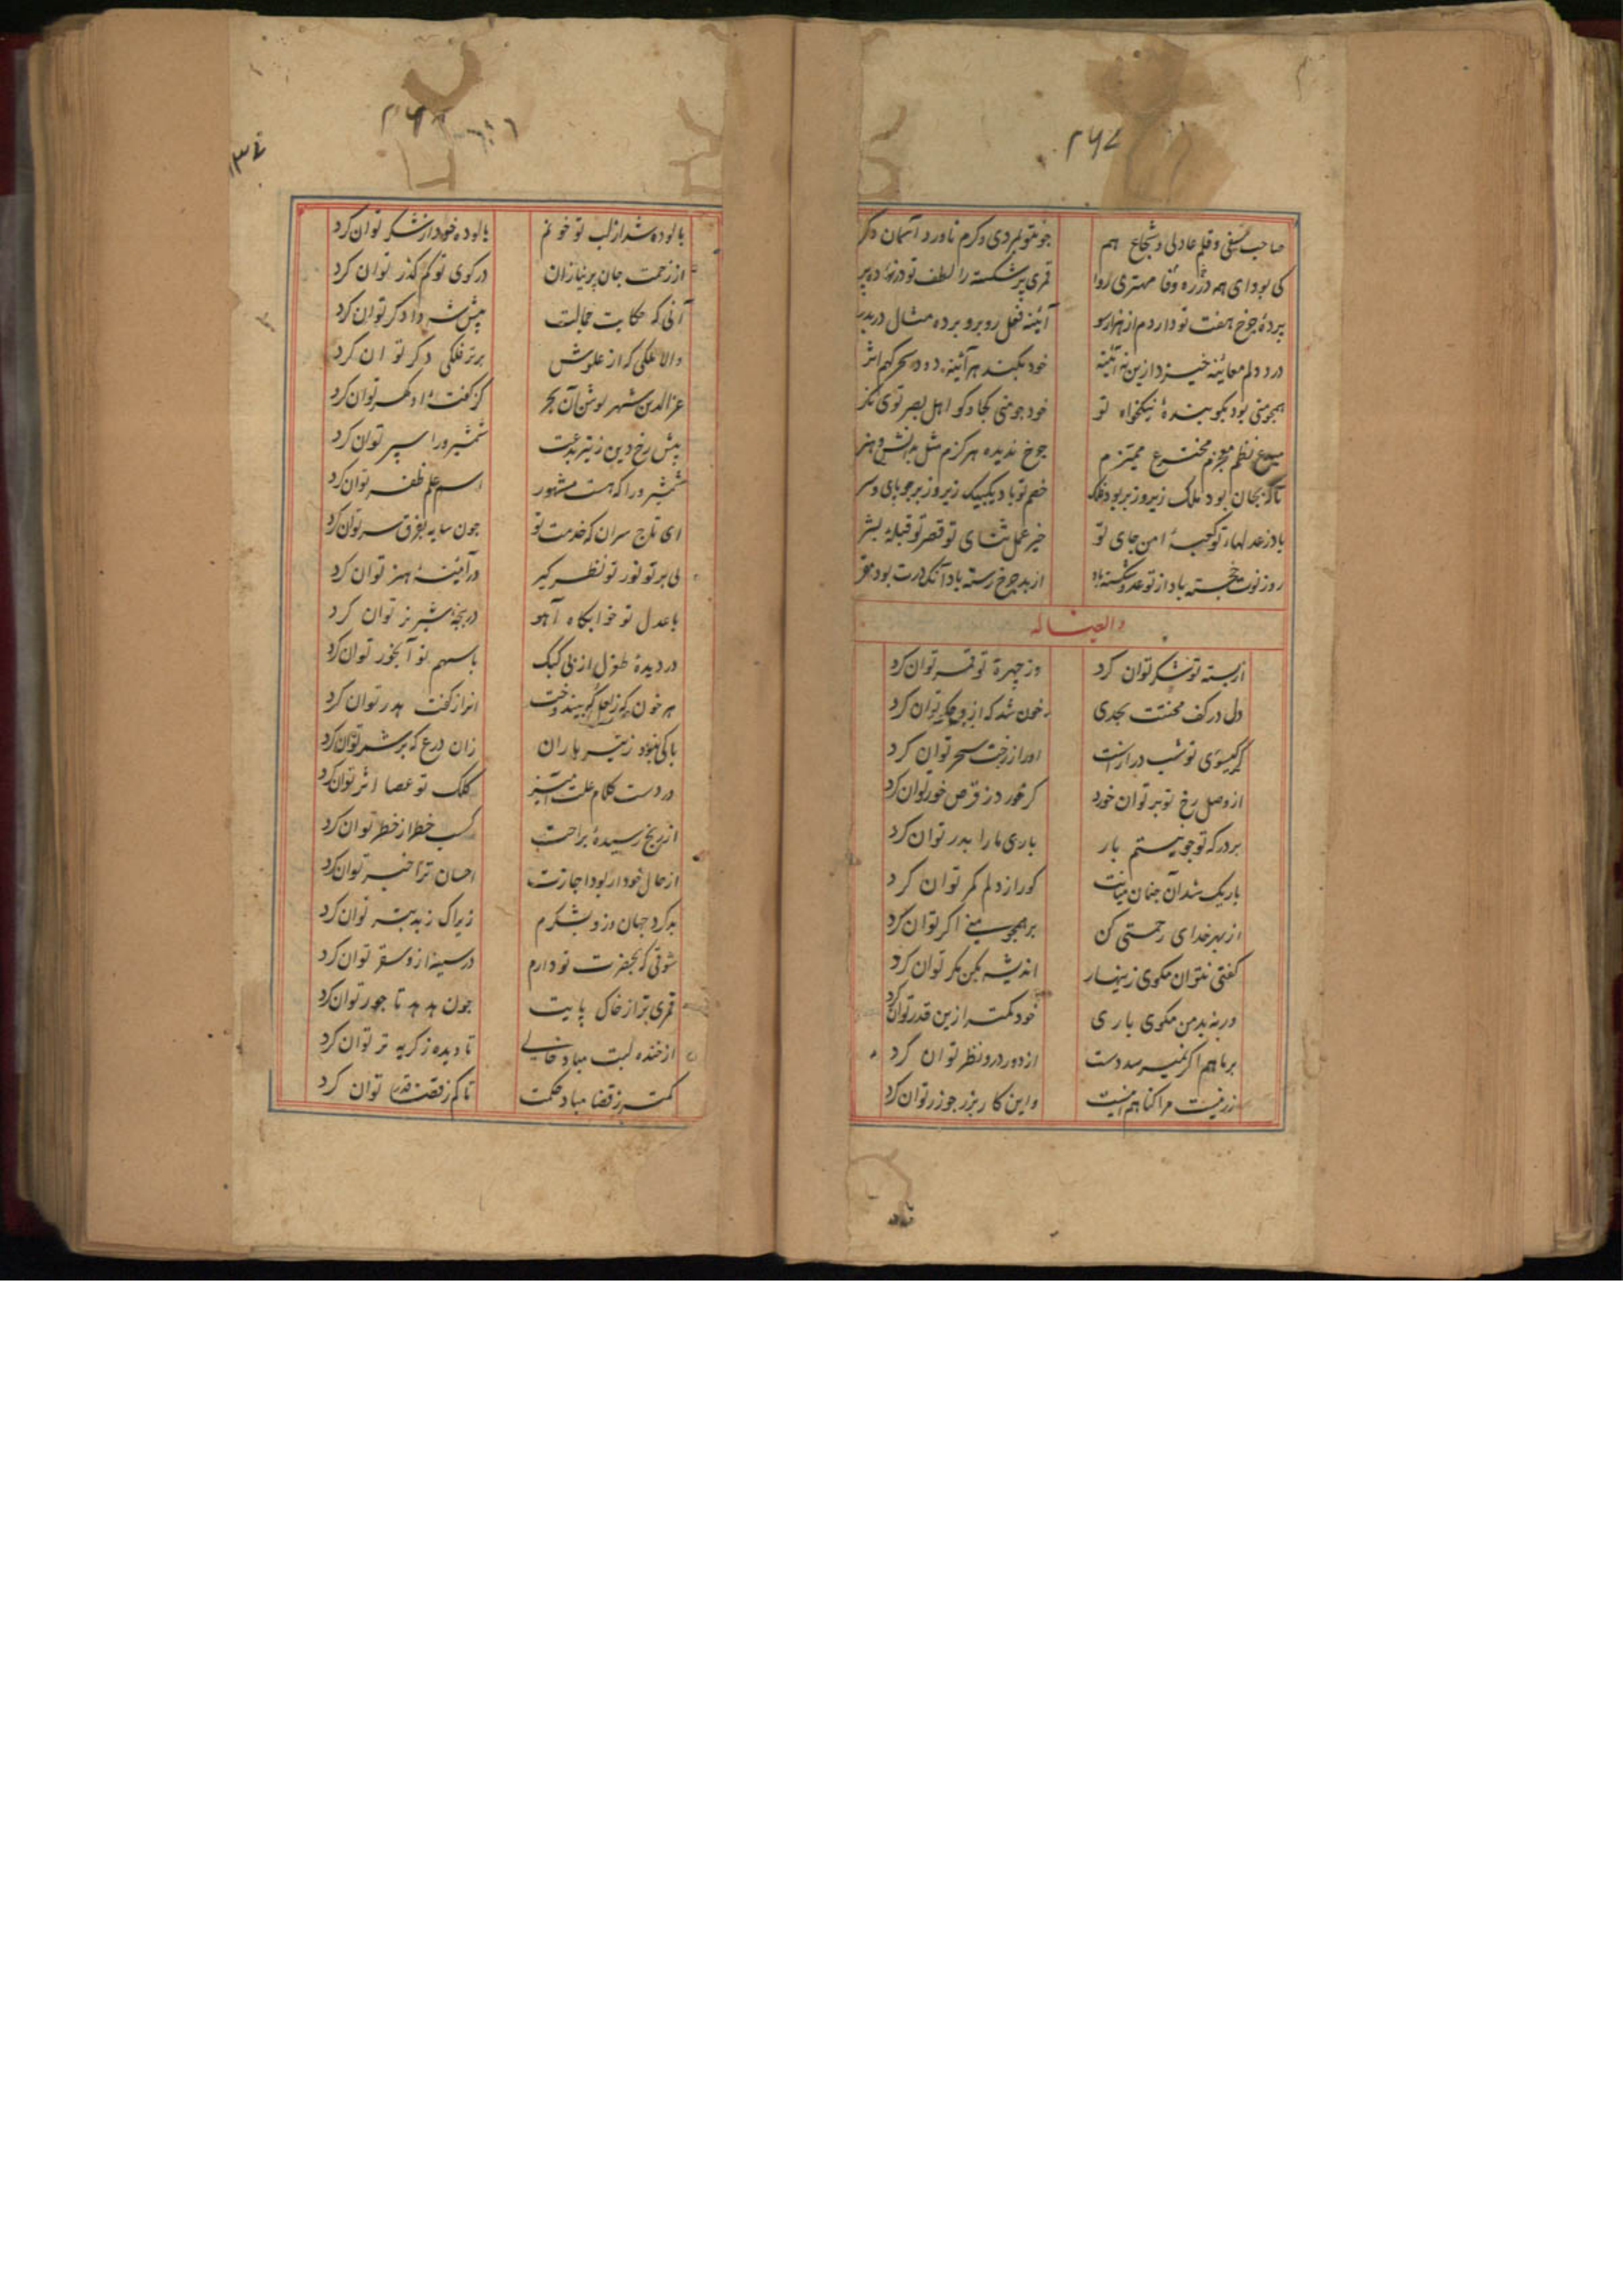 ۲۶۷
صاحب سیفی و قلم عادلی و شجاع هم جو نتو بمردی و کرم ناورد آسمان دکر
کی بود ای همه در ره وفا مهتری روا قمری پر شکسته را لطف تو در نواده پر
پرده چرخ هفت تو دارد م از هزار سو آئینه فعل روبرو برده مثال در بدر
درد دلم معاینه خیزد ازین نه آئینه خود نکند هر آئینه دود سحر کهم اثر
همجو منی بود بکو بنده نیکخواه تو خود جو منی کجا و کو اهل بصر توی نکر
مبدع نظم معجزم مخترع ممیزم جرخ ندیده هرکزم مثل بدانش و هنر
تا که بجان بود ملک زیر و زبر بود فلک خصم تو باد یکبیک زیر و زبر جو پای و سر
باد ز عدلهاء تو کعبه امن جای تو خیر عمل ثنای تو قصر تو قبله بشر
روز نوت خجسته باد از تو عدو شکسته باد از بد جرخ رسته باد آنکه درت بود مقر
و ایضا له
از پسته تو شکر توان کرد وز چهره تو قمر توان کرد
دل در کف محنتت بحدی خون شد که ازو جکر توان کرد
کر کیسوی تو شب درازست او را ز رخت سحر توان کرد
از وصل رخ تو بر توان خورد کر خورد ز قرص خور توان کرد
بر درکه تو جو نیستم بار باری ما را بدر توان کرد
باریک شد آن جنان میانت کو را ز دلم کمر توان کرد
از بهر خدای رحمتی کن بر همجو منی اکر توان کرد
کفتی نتوان مکوی زینهار اندیشه بکن مکر توان کرد
ور نه بد من مکوی باری خود کمتر ازین قدر توان کرد
بر ما هم اکر نمیرسد دست از دور درو نظر توان کرد
زر نیست مرا کناهم اینست و این کار بزر جو زر توان کرد
پالوده شد از لب تو خونم پالوده خود از شکر توان کرد
از زحمت جان پر نیازان در کوی تو کم کذر توان کرد
آنی که حکایت جمالت پیش شه دادکر توان کرد
والا ملکی که از علوش برتر فلکی دکر توان کرد
عزالدین شهریوش آن بحر کز کفته او کهر توان کرد
پیش رخ دین ز تیر بدعت شمشیر ورا سپر توان کرد
شمشیر ورا که هست مشهور اسم علم ظفر توان کرد
ای تاج سران که خدمت تو جون سایه بفرق سر توان کرد
بی پرتو نور تو نظر کیر در آئینه هنر توان کرد
با عدل تو خوابکاه آهو در پنجه شیر نر توان کرد
در دیده طغرل از پی کبک با سهم تو آبخور توان کرد
هر خون که ز لعل کوبیند وخت انرا ز کفت هدر توان کرد
باکی نبود ز تیر باران زان درع که بر شمر توان کرد
در دست کلام علت آمیز کلک تو عصا اثر توان کرد
از رنج رسیده براحت کسب خطر از خطر توان کرد
از حال خود ار بود اجازت احسان ترا خبر توان کرد
بد کرد جهان وزو بشکرم زیرا ک ز بد بتر توان کرد
شوقی که بحضرت تو دارم در سینه ازو سقر توان کرد
قمری بتر از خاک پایت جون هدهد تاجور توان کرد
از خنده لبت مباد خالی تا دیده ز کریه تر توان کرد
کمتر ز قضا مباد حکمت تا کم ز قضا قدر توان کرد